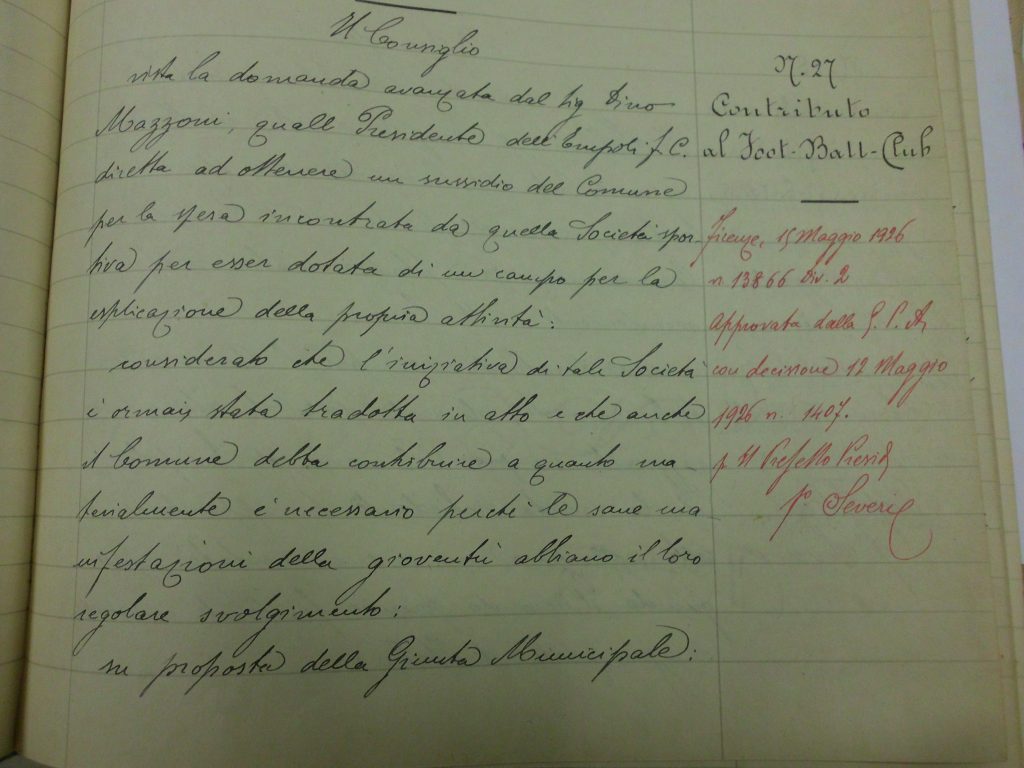 Il Consiglio
vista la domanda avanzata dal sig Dino
Mazzoni, quale Presidente dell'Empoli F. C.
diretta ad ottenere un sussidio del Comune
per la spesa incontrata da quella Società spor-
tiva per esser dotata di un campo per la
esplicazione della propria attività:
considerato che l'iniziativa di tale Società
è ormai stata tradotta in atto e che anche
il Comune debba contribuire a quanto ma
terialmente è necessario perchè le sane ma
nifestazioni della gioventù abbiano il loro
regolare svolgimento:
su proposta della Giunta Municipale:
N. 27
Contributo
al Foot-Ball-Club
Firenze, 15 Maggio 1926
n 13866 Div. 2
Approvata dalla G. P. A.
con decisione 12 Maggio
1926 n. 1407.
p. Il Prefetto Presid
fº Severi